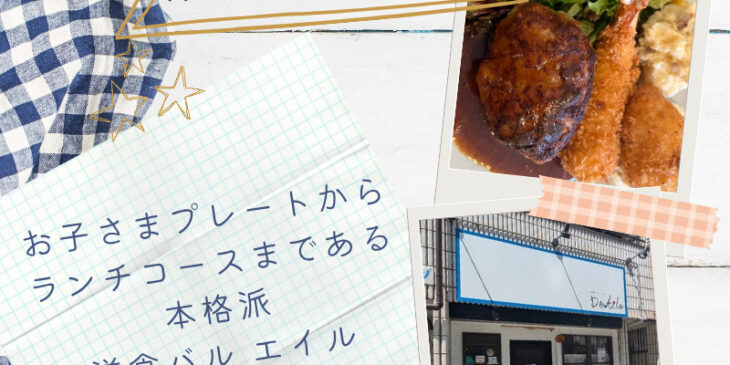 お子さまプレートから
ランチコースまである
本格派
洋食バル エイル